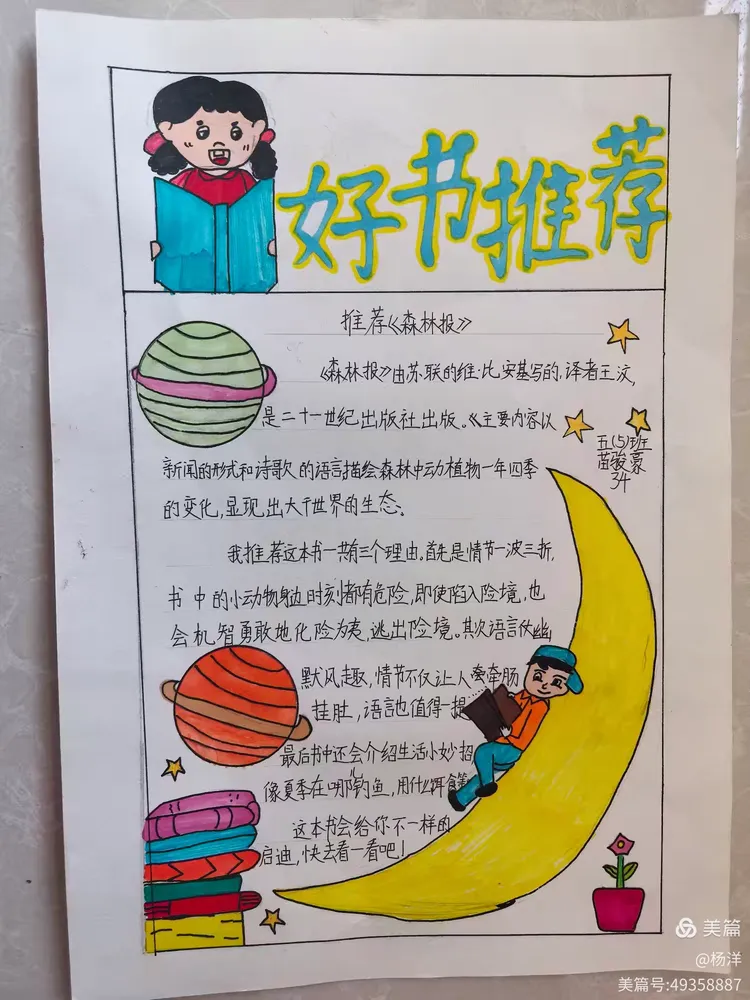 好书推荐
推荐《森林报》
《森林报》由苏联的维·比安基写的,译者王汶,
是二十一世纪出版社出版。《主要内容以
五(5)班
苗骏豪
34
新闻的形式和诗歌的语言描绘森林中动植物一年四季
的变化,显现出大千世界的生态。
我推荐这本书一共有三个理由。首先是情节一波三折,
书中的小动物身边时刻都有危险,即使陷入险境,也
会机智勇敢地化险为夷,逃出险境。其次语言幽
默风趣,情节不仅让人牵肠
挂肚,语言也值得一提
最后书中还会介绍生活小妙招
像夏季在哪钓鱼,用什么饵食等
这本书会给你不一样的
启迪,快去看一看吧!
美篇
@杨洋
美篇号:49358887